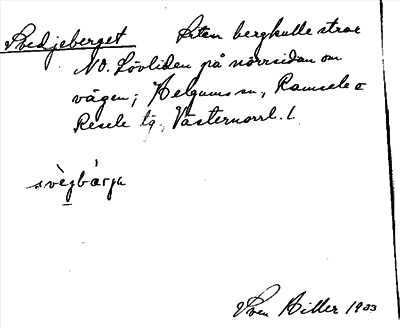 Svedjeberget Liten bergkulle strax
NO. Lövliden på norrsidan om
vägen; Helgums sn, Ramsele o
Resele tg, Västernorrl. l.
svègbárja
Sven Hiller 1933